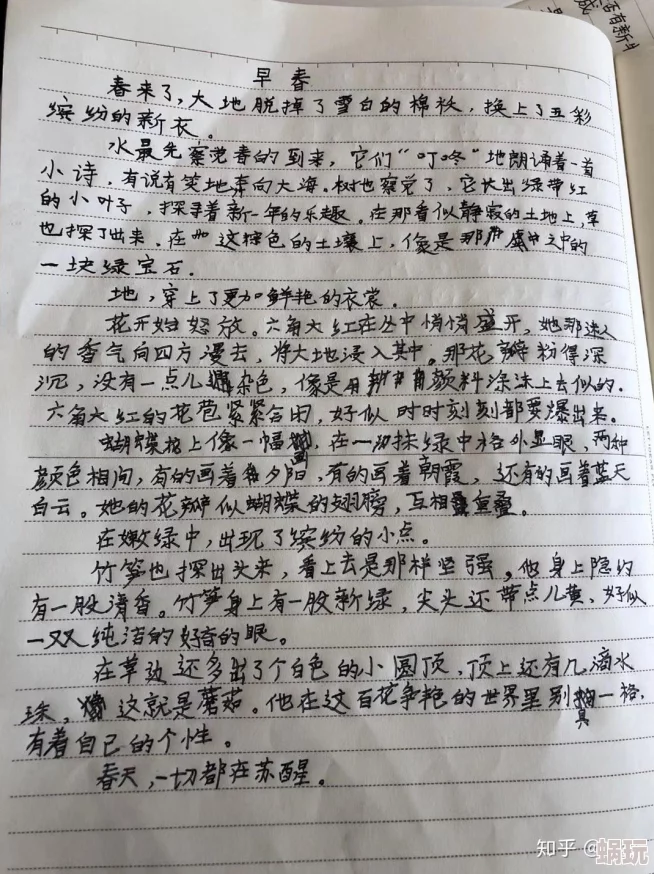 早春
春来了，大地脱掉了雪白的棉袄，换上了五彩
缤纷的新衣。
水最先察觉春的到来，它们“叮咚”地朗诵着一首
小诗，有说有笑地奔向大海。树也察觉了，它长出绿带红
的小叶子，探寻着新一年的乐趣。在那看似静寂的土地上，草
也探了出来。在这棕色的土壤上，像是那之中的
一块绿宝石。
地，穿上了更加鲜艳的衣裳。
花开始怒放。六角大红在丛中悄悄盛开，她那迷人
的香气向四方漫去，将大地浸入其中。那花瓣粉得深
沉，没有一点儿杂色，像是用颜料涂沫上去似的。
六角大红的花苞紧紧合闭，好似时时刻刻都要爆出来。
蝴蝶花上像一幅画，在一切抹绿中格外显眼，两种
颜色相间，有的画着夕阳，有的画着朝霞，还有的画着蓝天
白云。她的花瓣似蝴蝶的翅膀，互相重叠。
在嫩绿中，出现了缤纷的小点。
竹笋也探出头来，看上去是那样坚强。他身上隐约
有一股清香。竹笋身上有一股新绿，尖头还带点儿黄，好似
一双纯洁的好奇的眼。
在草边还多出了个白色的小圆顶，顶上还有几滴水
珠，这就是蘑菇。他在这百花争艳的世界里别具一格，
有着自己的个性。
春天，一切都在苏醒。
知乎 @
蜗玩